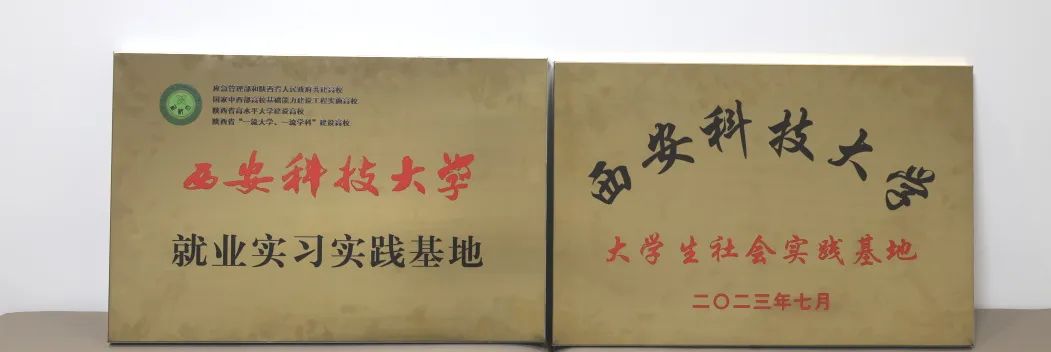 应急管理部和陕西省人民政府共建高校
国家中西部高校基础能力建设工程实施高校
陕西省高水平大学建设高校
陕西省“一流大学、一流学科”建设高校
西安科技大学
就业实习实践基地
西安科技大学
大学生社会实践基地
二〇二三年七月